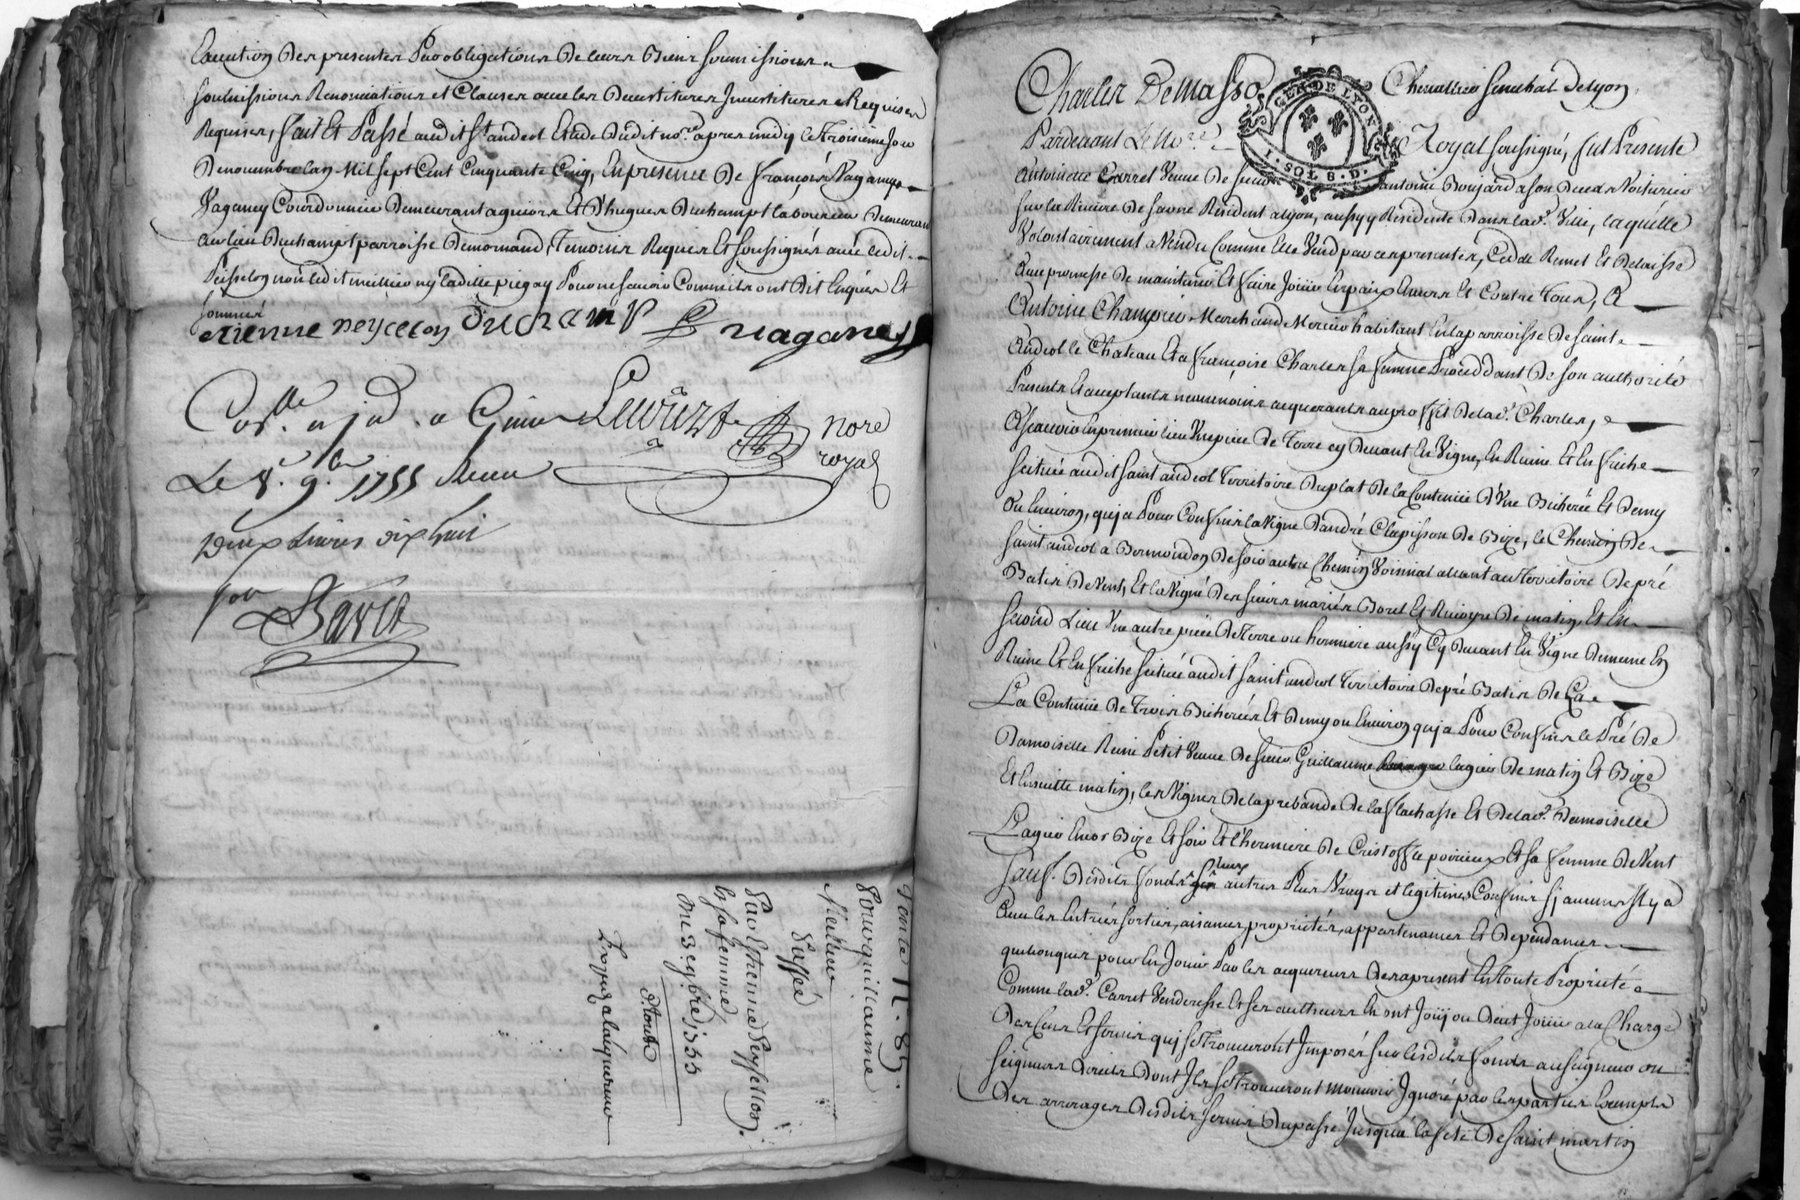 Execution des presentes Par obligations de leurs Biens soumissions
soumissions Renonciations et Clauses avec les Devestitures Investitures Requises
Requises, fait Et Passé audit St andeol Etude dudit nore. apres midy le Troisieme Jour
de novembre lan Mil sept Cent Cinquante Cinq, En presence de françois Vaganay
Vaganey Courdonnier Demeurant agivors Et d'hugues Duchampt laboureur Demeurant
au lieu Duchampt parroisse Demornand, Temoins Requis Et soussignés avec ledit
Peisselon non ledit meillieu ny ladite pour ne scavoir Comme ils ont dit Enquis Et
sommés
etienne peycelon Duchamp vaganey
Con.lle a Givors
Levurt nore
royal
Le 8e. 9.bre 1755 Receu
Deux Livres dix huit
sols
Vente N. 85.
Pour guillaume
Meillieu
Passée
Par Etienne Peysselon
Et sa femme,
Du 3e 9bre 1755
Expedié a lacquereur
Charles De Masso Chevallier senechal de lyon,
GEN. DE LYON
1. SOL 8. D.
Pardevant Le No.re Royal soussigné, fut Presente
Antoinette Carret Veuve De sieur antoine Boujard a son Vivant Voiturier
sur la Riviere De saone Resident a lyon, aussy y Residente Dans lad.e Ville, laquelle
Volontairement a Vendu Comme Elle Vend par ces presentes, Cede Remet Et Delaisse
avec promesse De maintenir Et faire Jouir En paix Envers Et Contre Tous, A
Antoine Champier Marchand Mercier habitant En la parroisse De saint
Andeol le Chateau Et a françoise Charles sa femme Procedant De son authorité
Presents Et acceptants neanmoins acquerants au proffit De lad.e Charles,
Ascavoir En premier lieu Une piece De Terre cy Devant En Vigne, En Ruine Et En friche
scituée audit saint andeol Territoire Duplat De la Contenüe D'Une Bicherée Et Demy
Ou Environ, qui a Pour Confins la Vigne D'andré Clapisson De Bize, le Chemin De
saint andeol a Bormondon De soir autre Chemin Voisinal allant au Territoire De pré
Batin De Vent, Et la Vigne Des sieurs mariés Borel Et Rivoyre De matin, Et En
second Lieu Une autre piece De Terre ou hermiere aussy Cy Devant En Vigne De meme En
Ruine Et En friche scituée audit saint andeol Territoire De pré Batin De La
La Contenüe De Trois Bicherées Et Demy ou Environ qui a Pour Confins le Pré De
Damoiselle Reine Petit Veuve De sieur Guillaume lagier De matin Et Bize
Et Ensuitte matin, les Vignes De la prebande De la flachasse Et De lad.e Damoiselle
Lagier Encor Bize Et soir Et l'hermiere De Cristofle poirieux Et sa femme De Vent
sauf Desdits fonds leurs autres Plus Vrays et legitimes Confins si aucuns Il y a
Avec les Entrées sorties, aisances, proprietés, appartenances Et Dependances
quelconques pour En Jouir Par les acquereurs Des apresent En Toute Proprieté
Comme lad.e Carret Venderesse Et ses autheurs En ont Jouï ou Deut Jouir a la Charge
Des Cens Et servis qui se Trouveront Imposés sur lesdits fonds au seigneur ou
seigneurs Directs Dont Ils se Trouveront mouvoir Ignoré par les parties Exempts
Des arrerages Desdits servis Du passé Jusqu'a la fete De saint martin